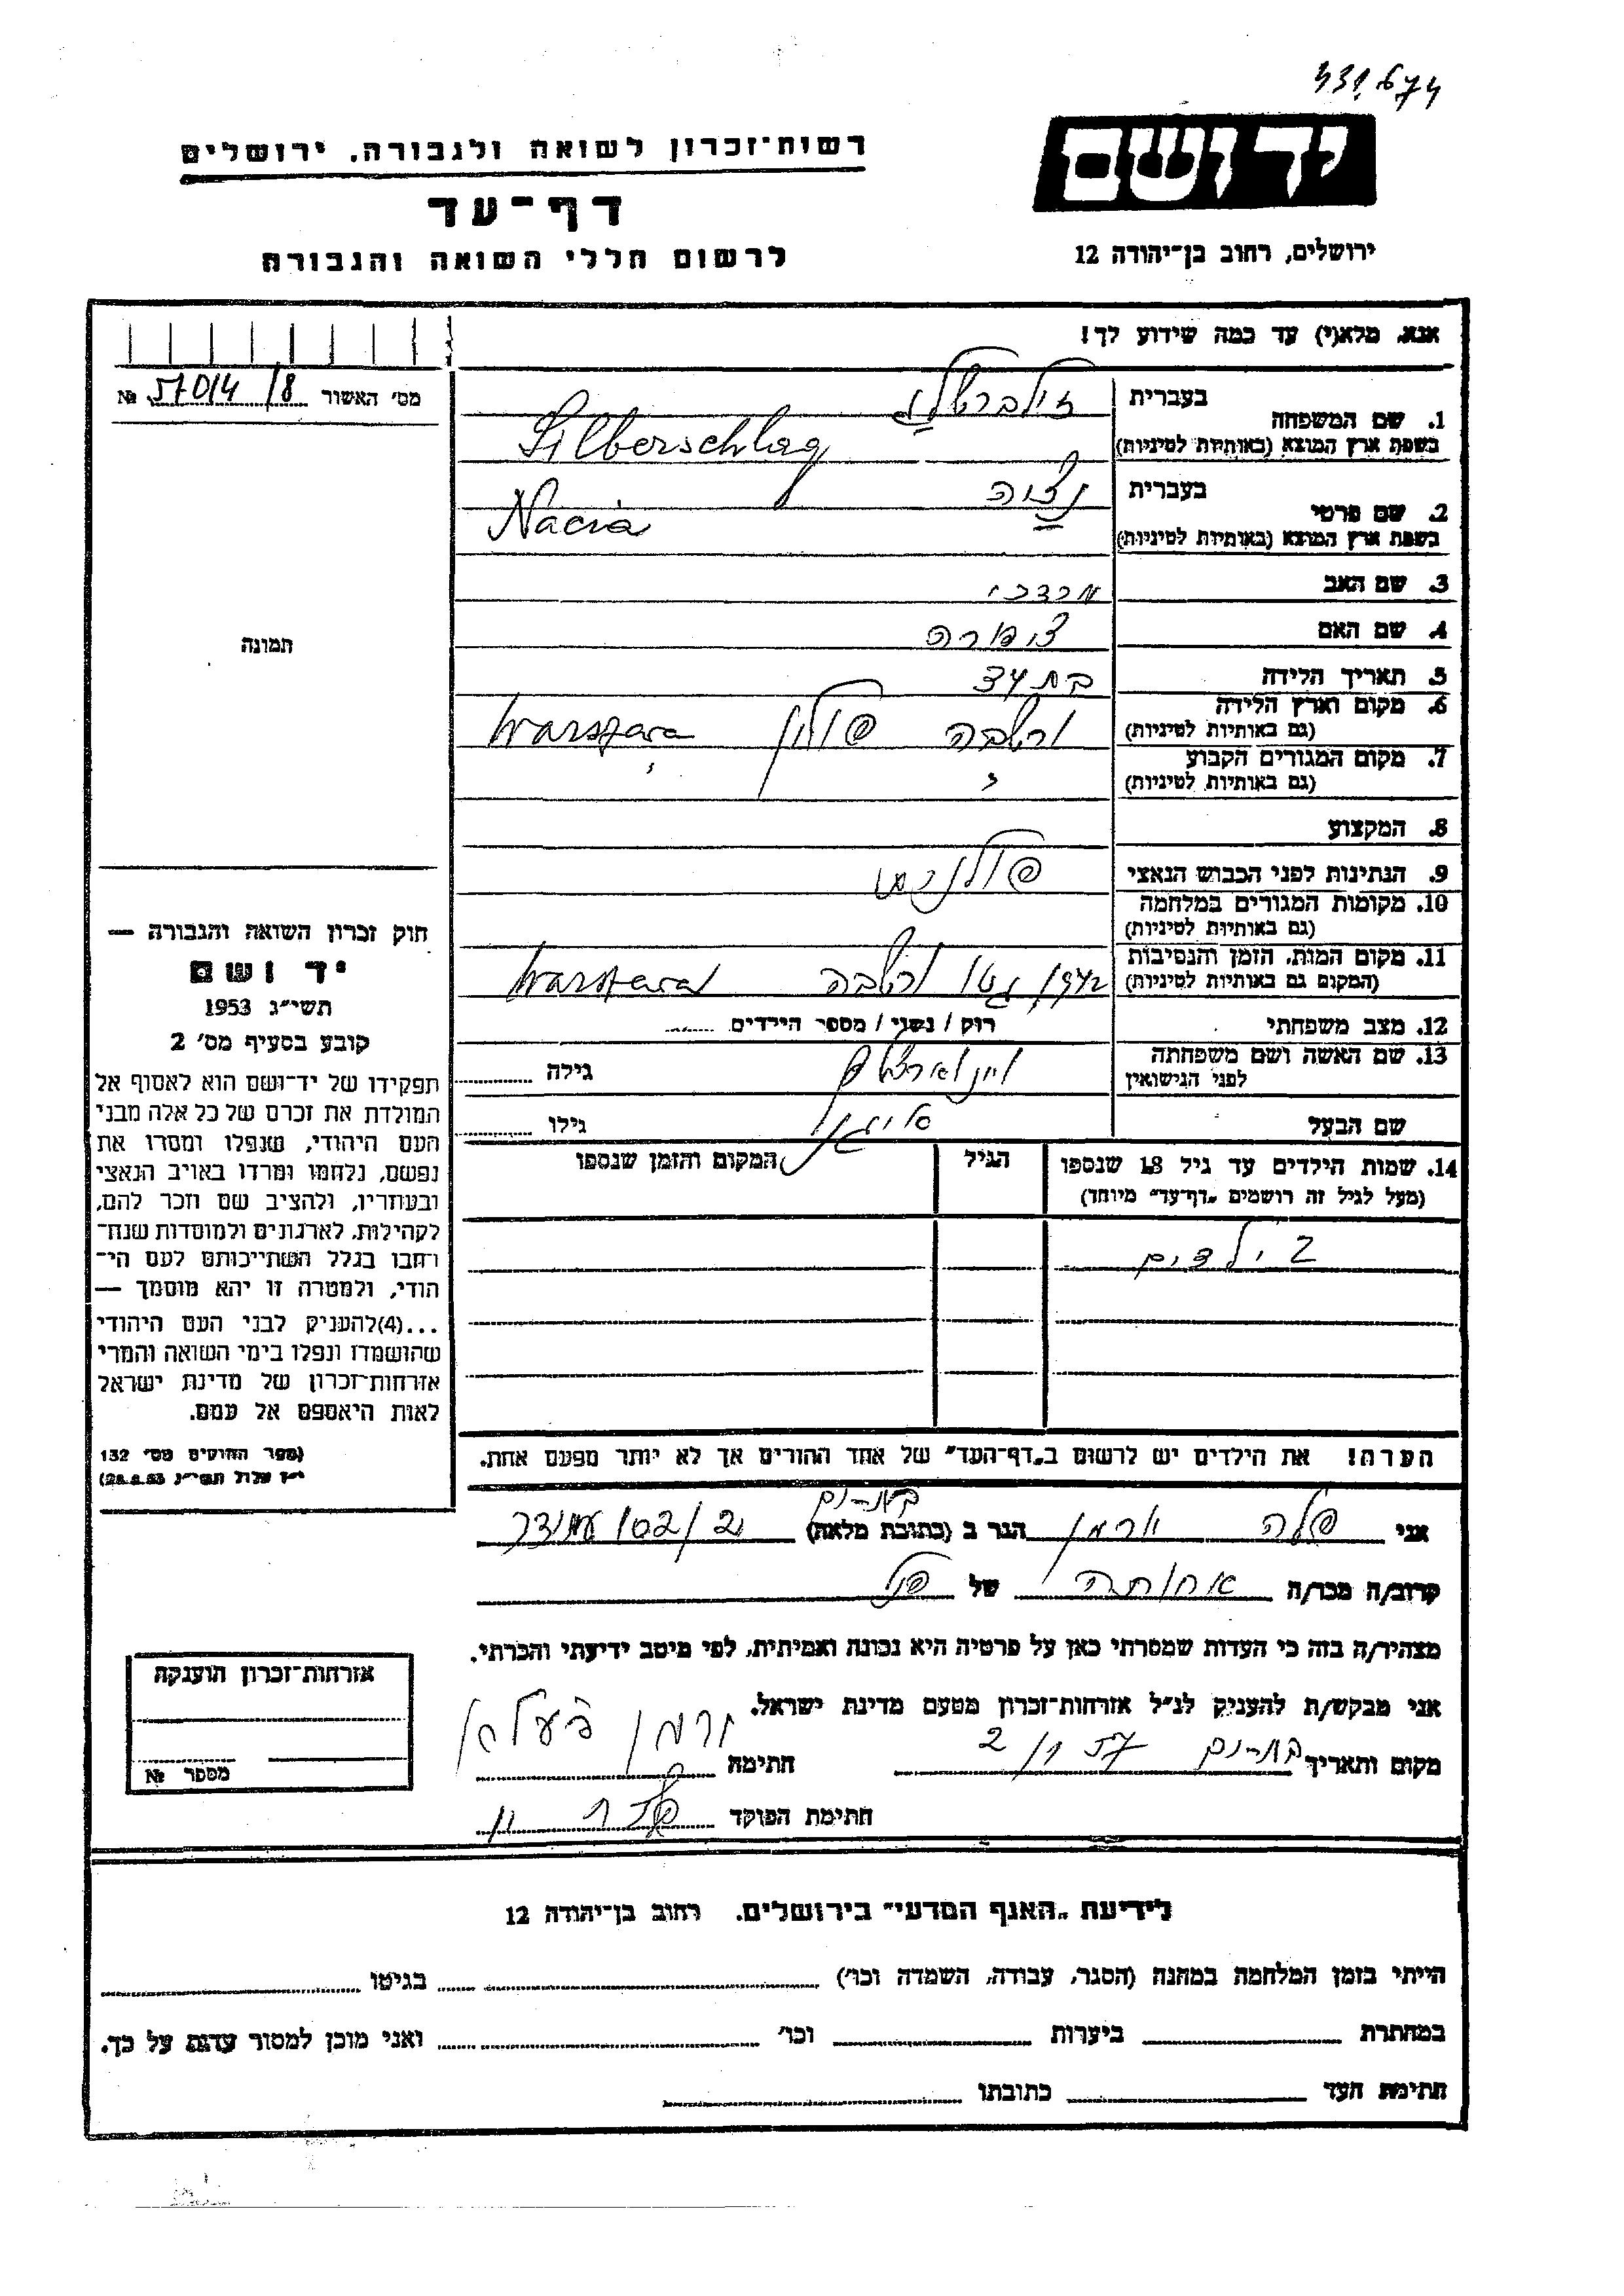 רשות־זכרון לשואה ולגבורה. ירושלים
דף־עד
לרשום חללי השואה והגבורה
יד ושם
ירושלים, רחוב בן־יהודה 12
אנא, מלא(י) עד כמה שידוע לך!
מס׳ האשור 57014/8 №
תמונה
1. שם המשפחה
בעברית זילברשלג
בשפת ארץ המוצא (באותיות לטיניות) Silberschlag
2. שם פרטי
בעברית
בשפת ארץ המוצא (באותיות לטיניות) Nacia
3. שם האב מרדכי
4. שם האם צפורה
5. תאריך הלידה בת 34
6. מקום וארץ הלידה
(גם באותיות לטיניות) ורשבה פולין Warszawa
7. מקום המגורים הקבוע
(גם באותיות לטיניות)
8. המקצוע
9. הנתינות לפני הכבוש הנאצי פולנית
10. מקומות המגורים במלחמה
(גם באותיות לטיניות)
11. מקום המות, הזמן והנסיבות
(המקום גם באותיות לטיניות) 1942 גטו ורשבה Warszawa
12. מצב משפחתי רוק / נשוי / מספר הילדים
13. שם האשה ושם משפחתה
לפני הנישואין
גילה
שם הבעל
גילו
14. שמות הילדים עד גיל 18 שנספו
(מעל לגיל זה רושמים „דף־עד״ מיוחד)
הגיל
המקום והזמן שנספו
2 ילדים
הערה! את הילדים יש לרשום ב„דף־העד״ של אחד ההורים אך לא יותר מפעם אחת.
חוק זכרון השואה והגבורה —
יד ושם
תשי״ג 1953
קובע בסעיף מס׳ 2
תפקידו של יד־ושם הוא לאסוף אל
המולדת את זכרם של כל אלה מבני
העם היהודי, שנפלו ומסרו את
נפשם, נלחמו ומרדו באויב הנאצי
ובעוזריו, ולהציב שם וזכר להם,
לקהילות, לארגונים ולמוסדות שנח־
רחבו בגלל השתייכותם לעם הי־
הודי, ולמטרה זו יהא מוסמך —
...(4) להעניק לבני העם היהודי
שהושמדו ונפלו בימי השואה והמרי
אזרחות־זכרון של מדינת ישראל
לאות היאספם אל עמם.
(ספר החוקים מס׳ 132
י״ז אלול תשי״ג 28.8.53)
אני פלה ורמן הגר ב (כתובת מלאה) בת־ים
קרוב/ה מכר/ה אחותה של
מצהיר/ה בזה כי העדות שמסרתי כאן על פרטיה היא נכונה ואמיתית, לפי מיטב ידיעתי והכרתי.
אני מבקש/ת להעניק לנ״ל אזרחות־זכרון מטעם מדינת ישראל.
מקום ותאריך בת־ים חתימה ורמן
חתימת הפוקד
אזרחות־זכרון הוענקה
מספר №
לידיעת „האגף המדעי״ בירושלים. רחוב בן־יהודה 12
הייתי בזמן המלחמה במחנה (הסגר, עבודה, השמדה וכו׳) בגיטו
במחתרת ביערות וכו׳ ואני מוכן למסור עדות על כך.
חתימת העד כתובתו